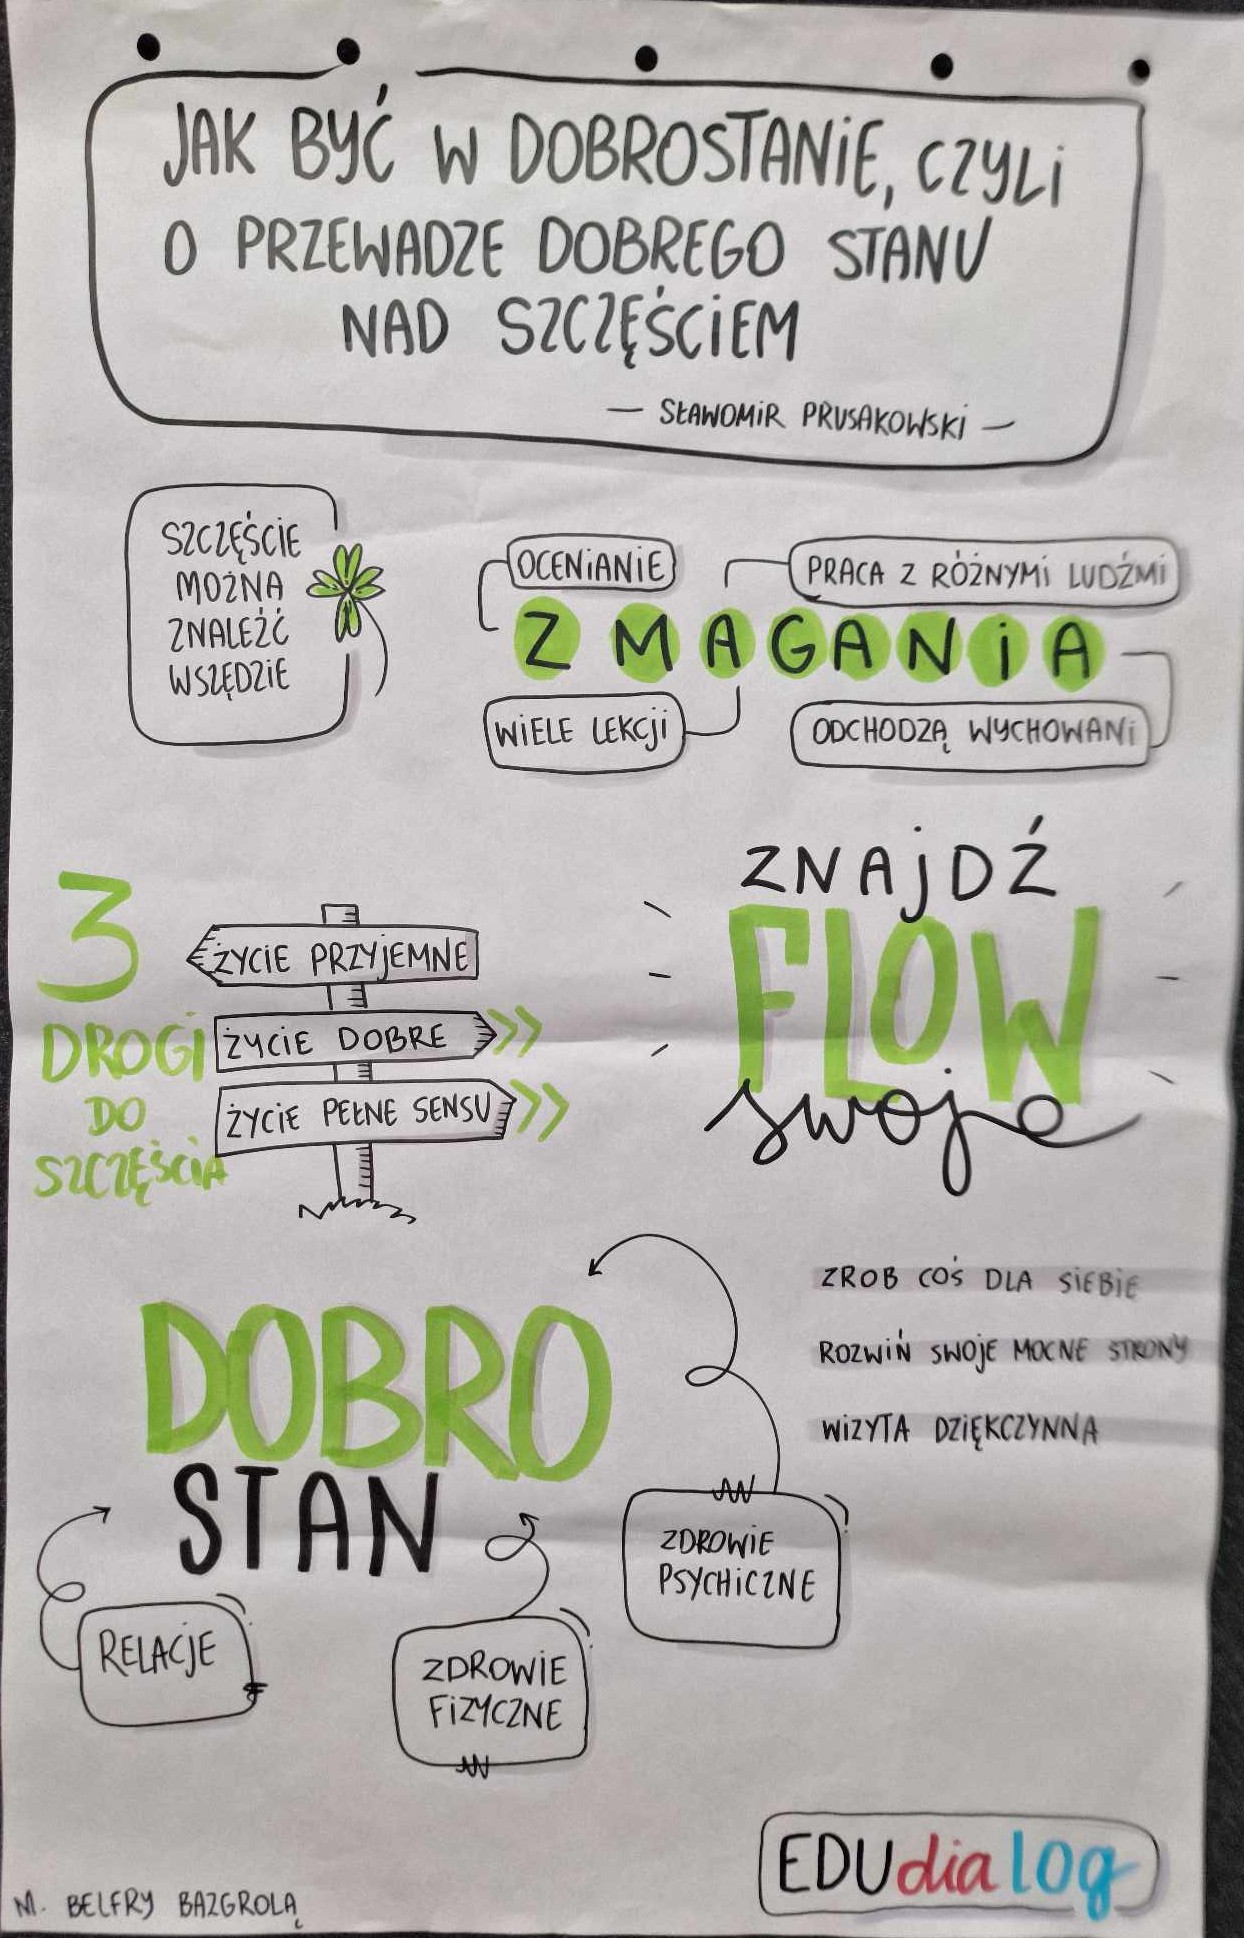 JAK BYĆ W DOBROSTANIE, CZYLI
O PRZEWADZE DOBREGO STANU
NAD SZCZĘŚCIEM
— SŁAWOMIR PRUSAKOWSKI —
SZCZĘŚCIE
MOŻNA
ZNALEŹĆ
WSZĘDZIE
OCENIANIE
PRACA Z RÓŻNYMI LUDŹMI
ZMAGANIA
WIELE LEKCJI
ODCHODZĄ WYCHOWANI
3
DROGI
DO
SZCZĘŚCIA
ŻYCIE PRZYJEMNE
ŻYCIE DOBRE
ŻYCIE PEŁNE SENSU
ZNAJDŹ
FLOW
swoje
ZROB COŚ DLA SIEBIE
ROZWIŃ SWOJE MOCNE STRONY
WIZYTA DZIĘKCZYNNA
DOBRO
STAN
RELACJE
ZDROWIE
FIZYCZNE
ZDROWIE
PSYCHICZNE
M. BELFRY BAZGROLĄ
EDUdialog